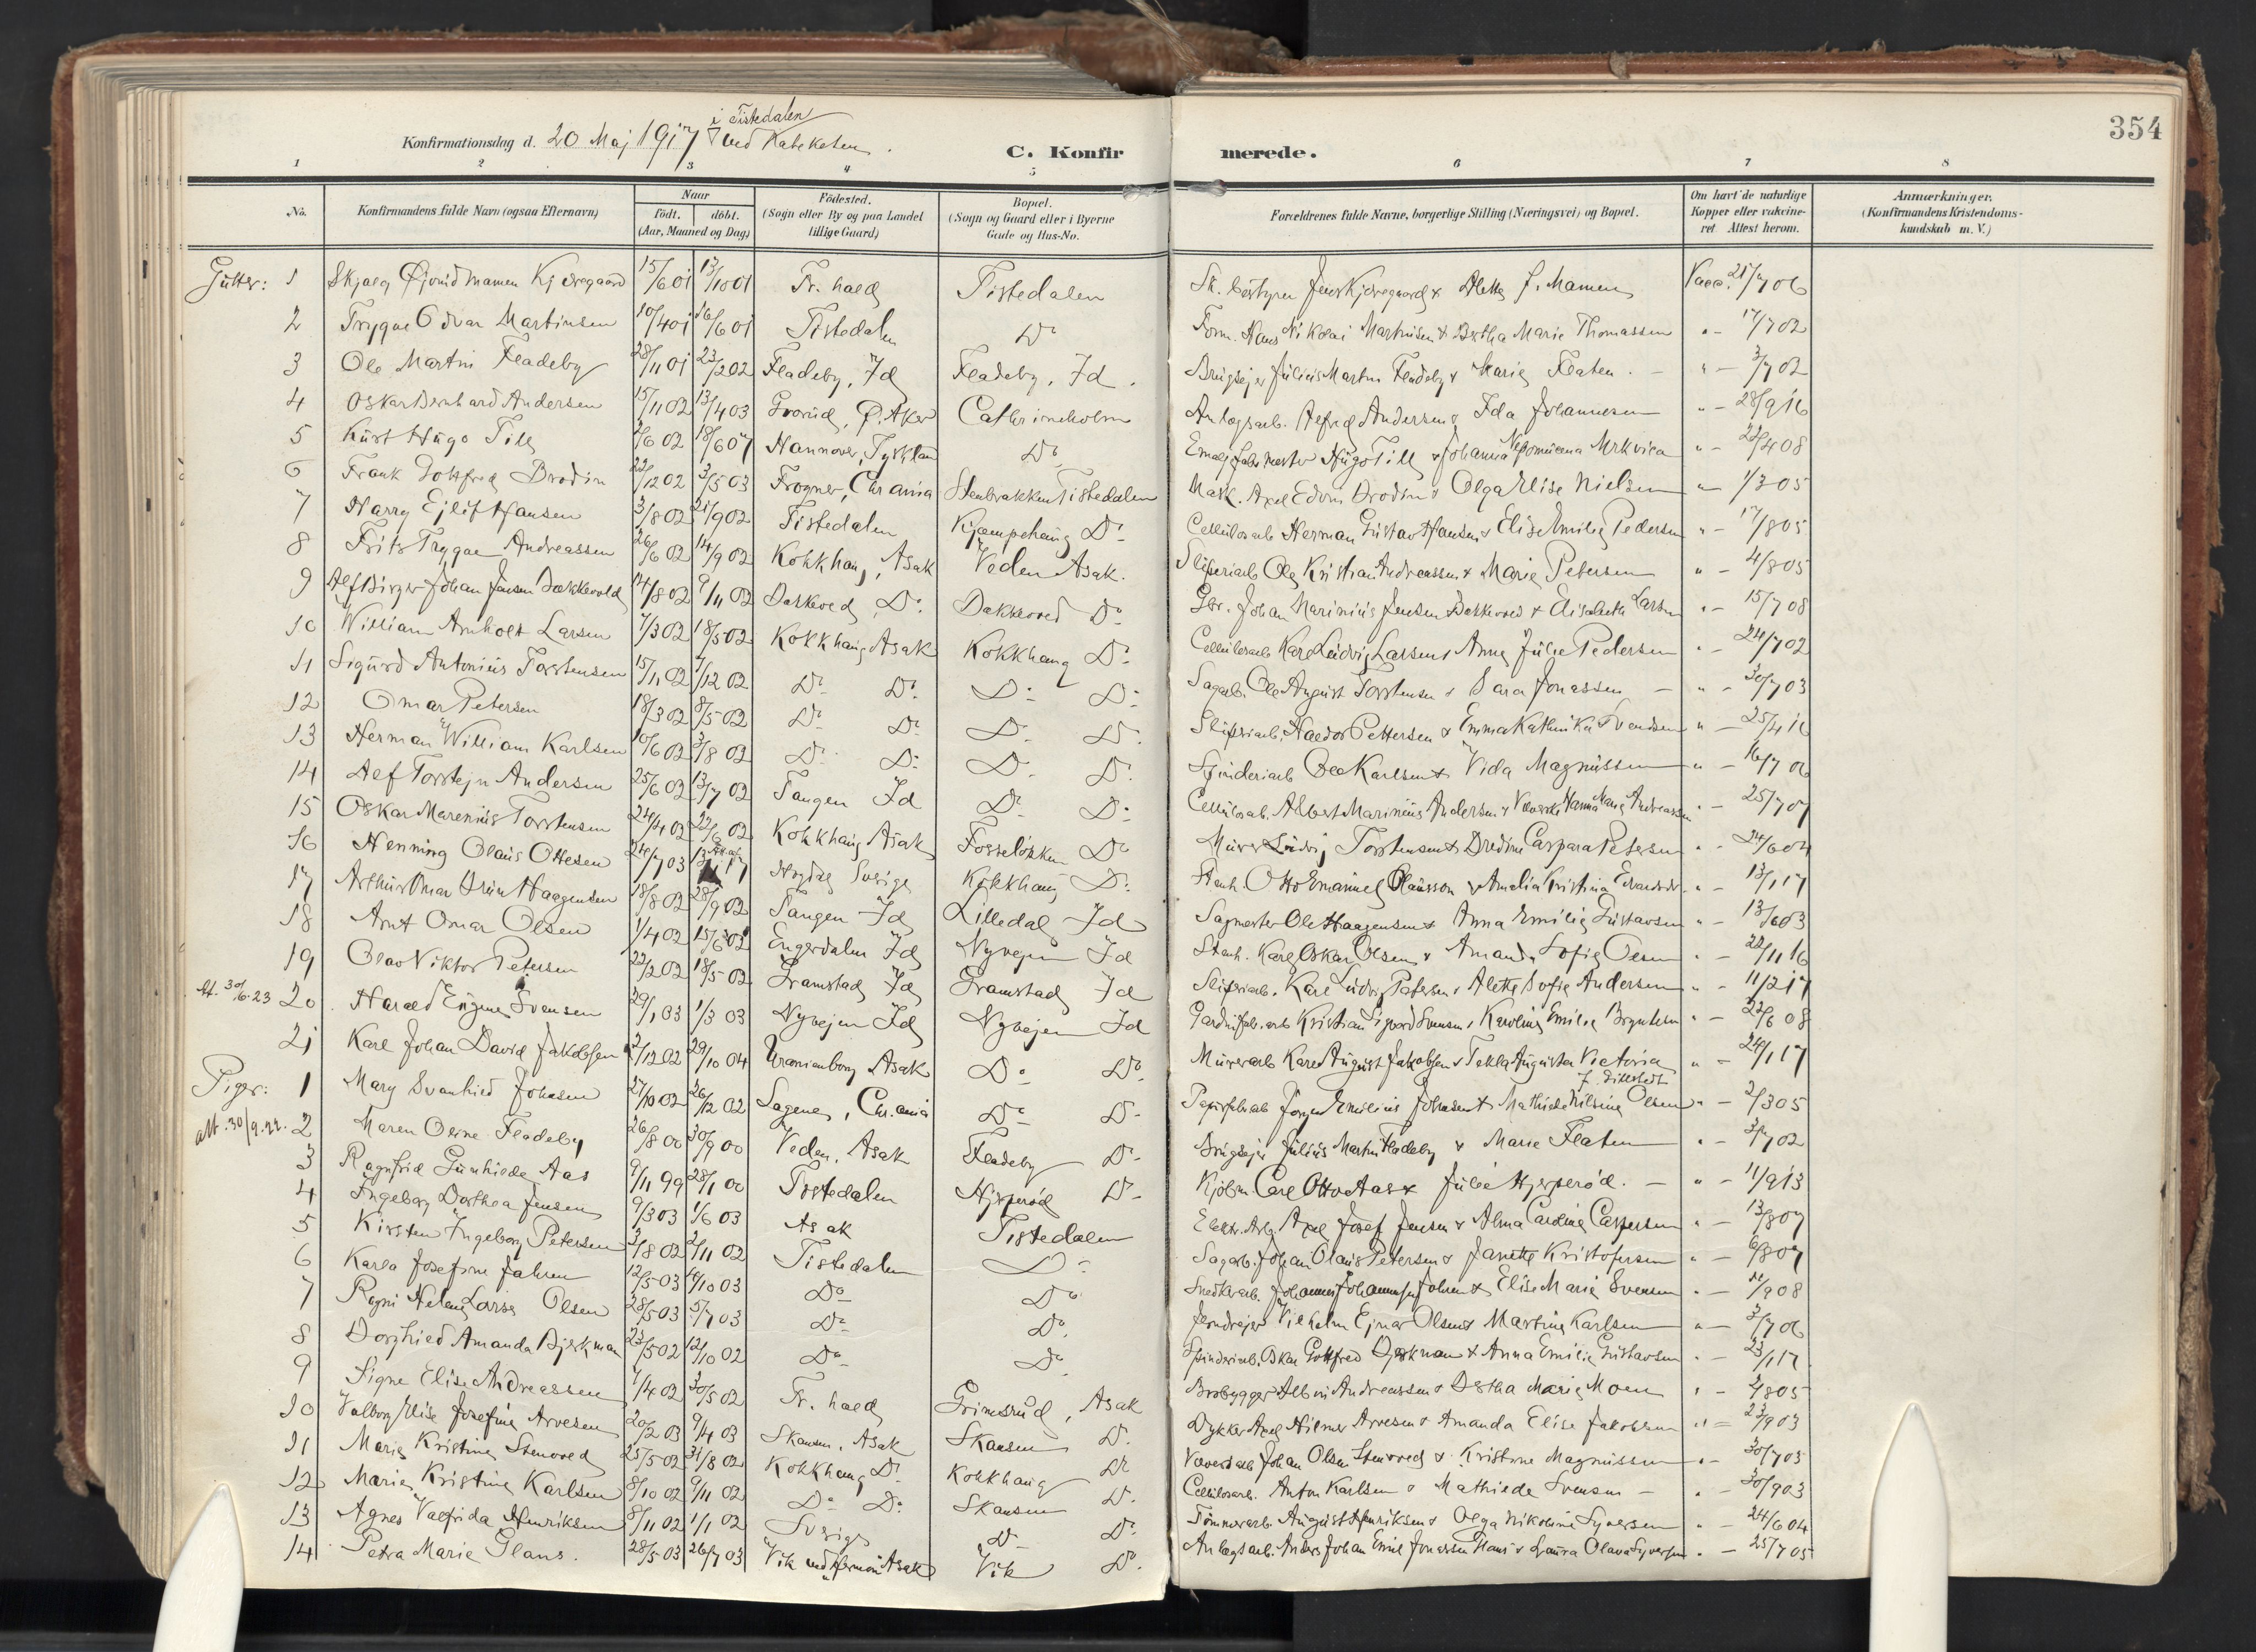 354
i Tistedalen
Konfirmationsdag d. 20 Maj 1917 ved
C. Konfir merede.
1 2 3 4 5 6 7 8
No. Konfirmandens fulde Navn (ogsaa Efternavn) Naar født. døbt. (Aar, Maaned og Dag) Fødested. (Sogn eller By og paa Landet tillige Gaard) Bopæl. (Sogn og Gaard eller i Byerne Gade og Hus-No. Forældrenes fulde Navne, borgerlige Stilling (Næringsvei) og Bopæl. Om havt de naturlige Kopper eller vakcineret. Attest herom. Anmærkninger. (Konfirmandens Kristendomskundskab m. V.)
Gutter: 1 Skjalg Øjvind Mamen Kjeregaard 15/6 01 13/10 01 Fr. hald Tistedalen Jens Kjeregaard & Aletta J. Mamen Vacc. 21/7 06
2 Trygve Odvar Martinsen 10/4 01 16/6 01 Tistedalen Do Form. Hans Nikolai Martinsen & Bertha Marie Thomassen " - 17/7 02
3 Ole Martin Fladeby 28/11 01 23/2 02 Fladeby, Id Fladeby, Id. Brugsejer Julius Martin Fladeby & Marie Flaten. - " - 3/7 02
4 Oskar Bernhard Andersen 15/11 02 13/4 03 Grorud, Ø. Aker Cathrineholm Anlægsarb. Alfred Andersen & Ida Johannesen " - 28/9 16
5 Kurt Hugo Till 2/6 02 18/6 07 Hannover, Tyskland Do Hugo Till & Johanna Nepomucena Mrkvica " - 22/4 08
6 Frank Gottfred Brodin 22/12 02 3/5 03 Frogner, Chr.ania Stenbrækken Tistedalen Mask. Axel Edvin Brodin & Olga Elise Nielsen " - 1/3 05
7 Harry Ejlif Hansen 3/8 02 21/9 02 Tistedalen Kjæmpehaug Do Cellulosarb Herman Gustav Hansen & Elise Emilie Pedersen " - 17/8 05
8 Frits Trygve Andreassen 26/6 02 14/9 02 Kokkhaug, Asak Veden Asak. Sliperiarb Ole Kristian Andreassen & Marie Petersen " - 4/8 05
9 Alf Birger Johan Jensen Dækkevold 14/8 02 9/11 02 Do. Do Gbr. Johan Marinius Jensen & Elisabeth Larsen " - 15/7 08
10 William Arnholt Larsen 7/3 02 18/5 02 Kokkhaug Asak Kokkhaug Do Cellulosarb Karl Ludvig Larsen & Anna Julie Pedersen " - 24/7 02
11 Sigurd Antonius Torstensen 15/11 02 7/12 02 Do Do Do Do Sagarb. Ole August Torstensen & Sara Jonassen - " - 30/7 03
12 Omar Petersen 18/3 02 8/5 02 Do Do Do Do Sliperiarb. Haldor Pettersen & Emma Kathinka Svendsen " - 25/4 16
13 Herman William Karlsen 10/6 02 3/8 02 Do Do Do Do Spinderiarb Ole Karlsen & Vida Magnussen " - 16/7 06
14 Alf Torstejn Andersen 25/6 02 13/7 02 Tangen Id Do Do Cellulosarb. Albert Marinius Andersen & Hanna Marie Andreassen " - 25/7 07
15 Oskar Marenius Torstensen 24/4 02 22/6 02 Kokkhaug Asak Fosseløkken Do Murer Ludvig Torstensen & Caspara Petersen " - 24/6 04
16 Henning Olaus Ottesen 24/7 03 Sverige Kokkhaug Do Stenh. Otto Emanuel Olausson & Amalia Kristina " - 13/1 17
17 Arthur Omar Haagensen 18/8 02 28/9 02 Tangen Id Lilledal Id Sagmester Ole Haagensen & Anna Emilie Gustavsen " - 13/6 03
18 Arnt Omar Olsen 1/4 02 15/6 02 Engerdalen Id Nyvejen Id Stenh. Karl Oskar Olsen & Amanda Sofie Olsen " - 22/11 16
19 Olav Viktor Petersen 22/2 02 18/5 02 Gramstad Id Gramstad Id Sliperiarb. Karl Ludvig Petersen & Alette Sofie Andersen " - 11/2 17
Att. 30/6.23 20 Harald Eugene Svensen 29/1 03 1/3 03 Nyvejen Id Nyvejen Id Kristian Sigvard Svensen & Karoline Emilie " - 22/6 08
21 Karl Johan David Jakobsen 2/12 02 29/10 04 Uranienborg Asak Do Do Murerarb Karl August Jakobsen & Tekla Augusta Victoria " - 24/1 17
Piger: 1 Mary Svanhild Johnsen 27/10 02 26/12 02 Sagene, Chr.ania Do Do Papirfabrarb Jørgen Emilius Johnsen & Mathilde Nilsine Olsen " - 2/3 05
att. 30/9.22. 2 Maren Oline Fladeby 26/8 00 30/9 00 Veden, Asak Fladeby Do Brugsejer Julius Martin Fladeby & Marie Flaten " - 3/7 02
3 Ragnhild Gunhilde Aas 9/11 99 28/1 00 Tistedalen Hjerperød Do Kjøbm. Carl Otto Aas & Julie Hjerperød. - " - 11/9 13
4 Ingeborg Dorthea Jensen 9/3 03 1/6 03 Asak Tistedalen Elektr. Arb. Axel Josef Jensen & Alma Caroline Caspersen " - 13/8 07
5 Kirsten Ingeborg Petersen 3/8 02 2/11 02 Tistedalen Do Sagarb. Johan Olaus Petersen & Janette Kristofersen " - 6/8 07
6 Karla Josefine Jahren 12/5 03 4/10 03 Do Do Snedkerarb. Johannes Johannesen Jahren & Elise Marie Svensen " - 11/9 08
7 Ragni Helene Lovise Olsen 28/5 03 5/7 03 Do Do Jerndrejer Vilhelm Ejnar Olsen & Martine Karlsen " - 3/7 06
8 Borghild Amanda Bjerkman 23/5 02 12/10 02 Do Do Spinderiarb. Oskar Gottfred Bjerkman & Anna Emilie Gustavsen " - 23/1 17
9 Signe Elise Andreassen 7/4 02 30/5 02 Fr. hald Grimsrud, Asak Brobygger Albin Andreassen & Bertha Marie Moen " - 2/8 05
10 Valborg Elise Josefine Arvesen 20/2 03 9/4 03 Skansen, Asak Skansen Do Dykker Axel Hilmer Arvesen & Amanda Elise Jakobsen " - 23/9 03
11 Marie Kristine Stenvred 25/5 02 31/8 02 Kokkhaug Do Kokkhaug Do Johan Olsen Stenvred & Kristine Magnussen " - 30/7 03
12 Marie Kristine Karlsen 8/10 02 9/11 02 Do Do Skansen Do Cellulosarb. Anton Karlsen & Mathilde Svensen - " - 30/9 03
13 Agnes Valfrida Henriksen 8/11 02 1/1 02 Sverige Do Do Tømmerarb. August Henriksen & Olga Nikoline Syversen " - 24/6 04
14 Petra Marie Hans. 28/5 03 26/7 03 Vik ved Asak Vik Do Anlægsarb. Anders Johan Emil Jonassen Hans & Laura Olava Syversen " - 25/7 05